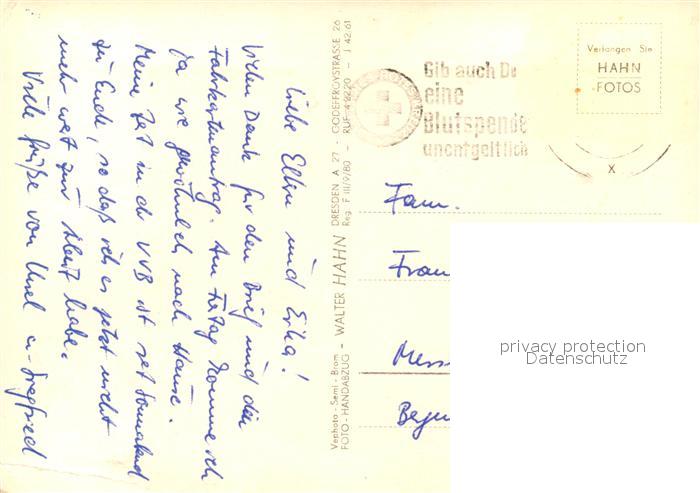 Liebe Eltern und Erika!
Vielen Dank für den Brief und den
Fahrkartenantrag. Am Freitag komme ich
ja wie gewöhnlich nach Hause.
Meine Zeit in der VVB ist seit Sonnabend
zu Ende, so daß ich es jetzt nicht
mehr weit zur Arbeit habe.
Viele Grüße von Ursel u. Siegfried
Vephoto - Seml - Brom
FOTO - HANDABZUG - WALTER HAHN DRESDEN A 27 - GODEFFROYSTRASSE 26
Reg. F III/9/80 - RUF 4 8220 - J 42 61
Gib auch Du
eine
Blutspende
unentgeltlich
Verlangen Sie
HAHN
-FOTOS
x
Fam.
Fran
Mess
privacy protection
Datenschutz